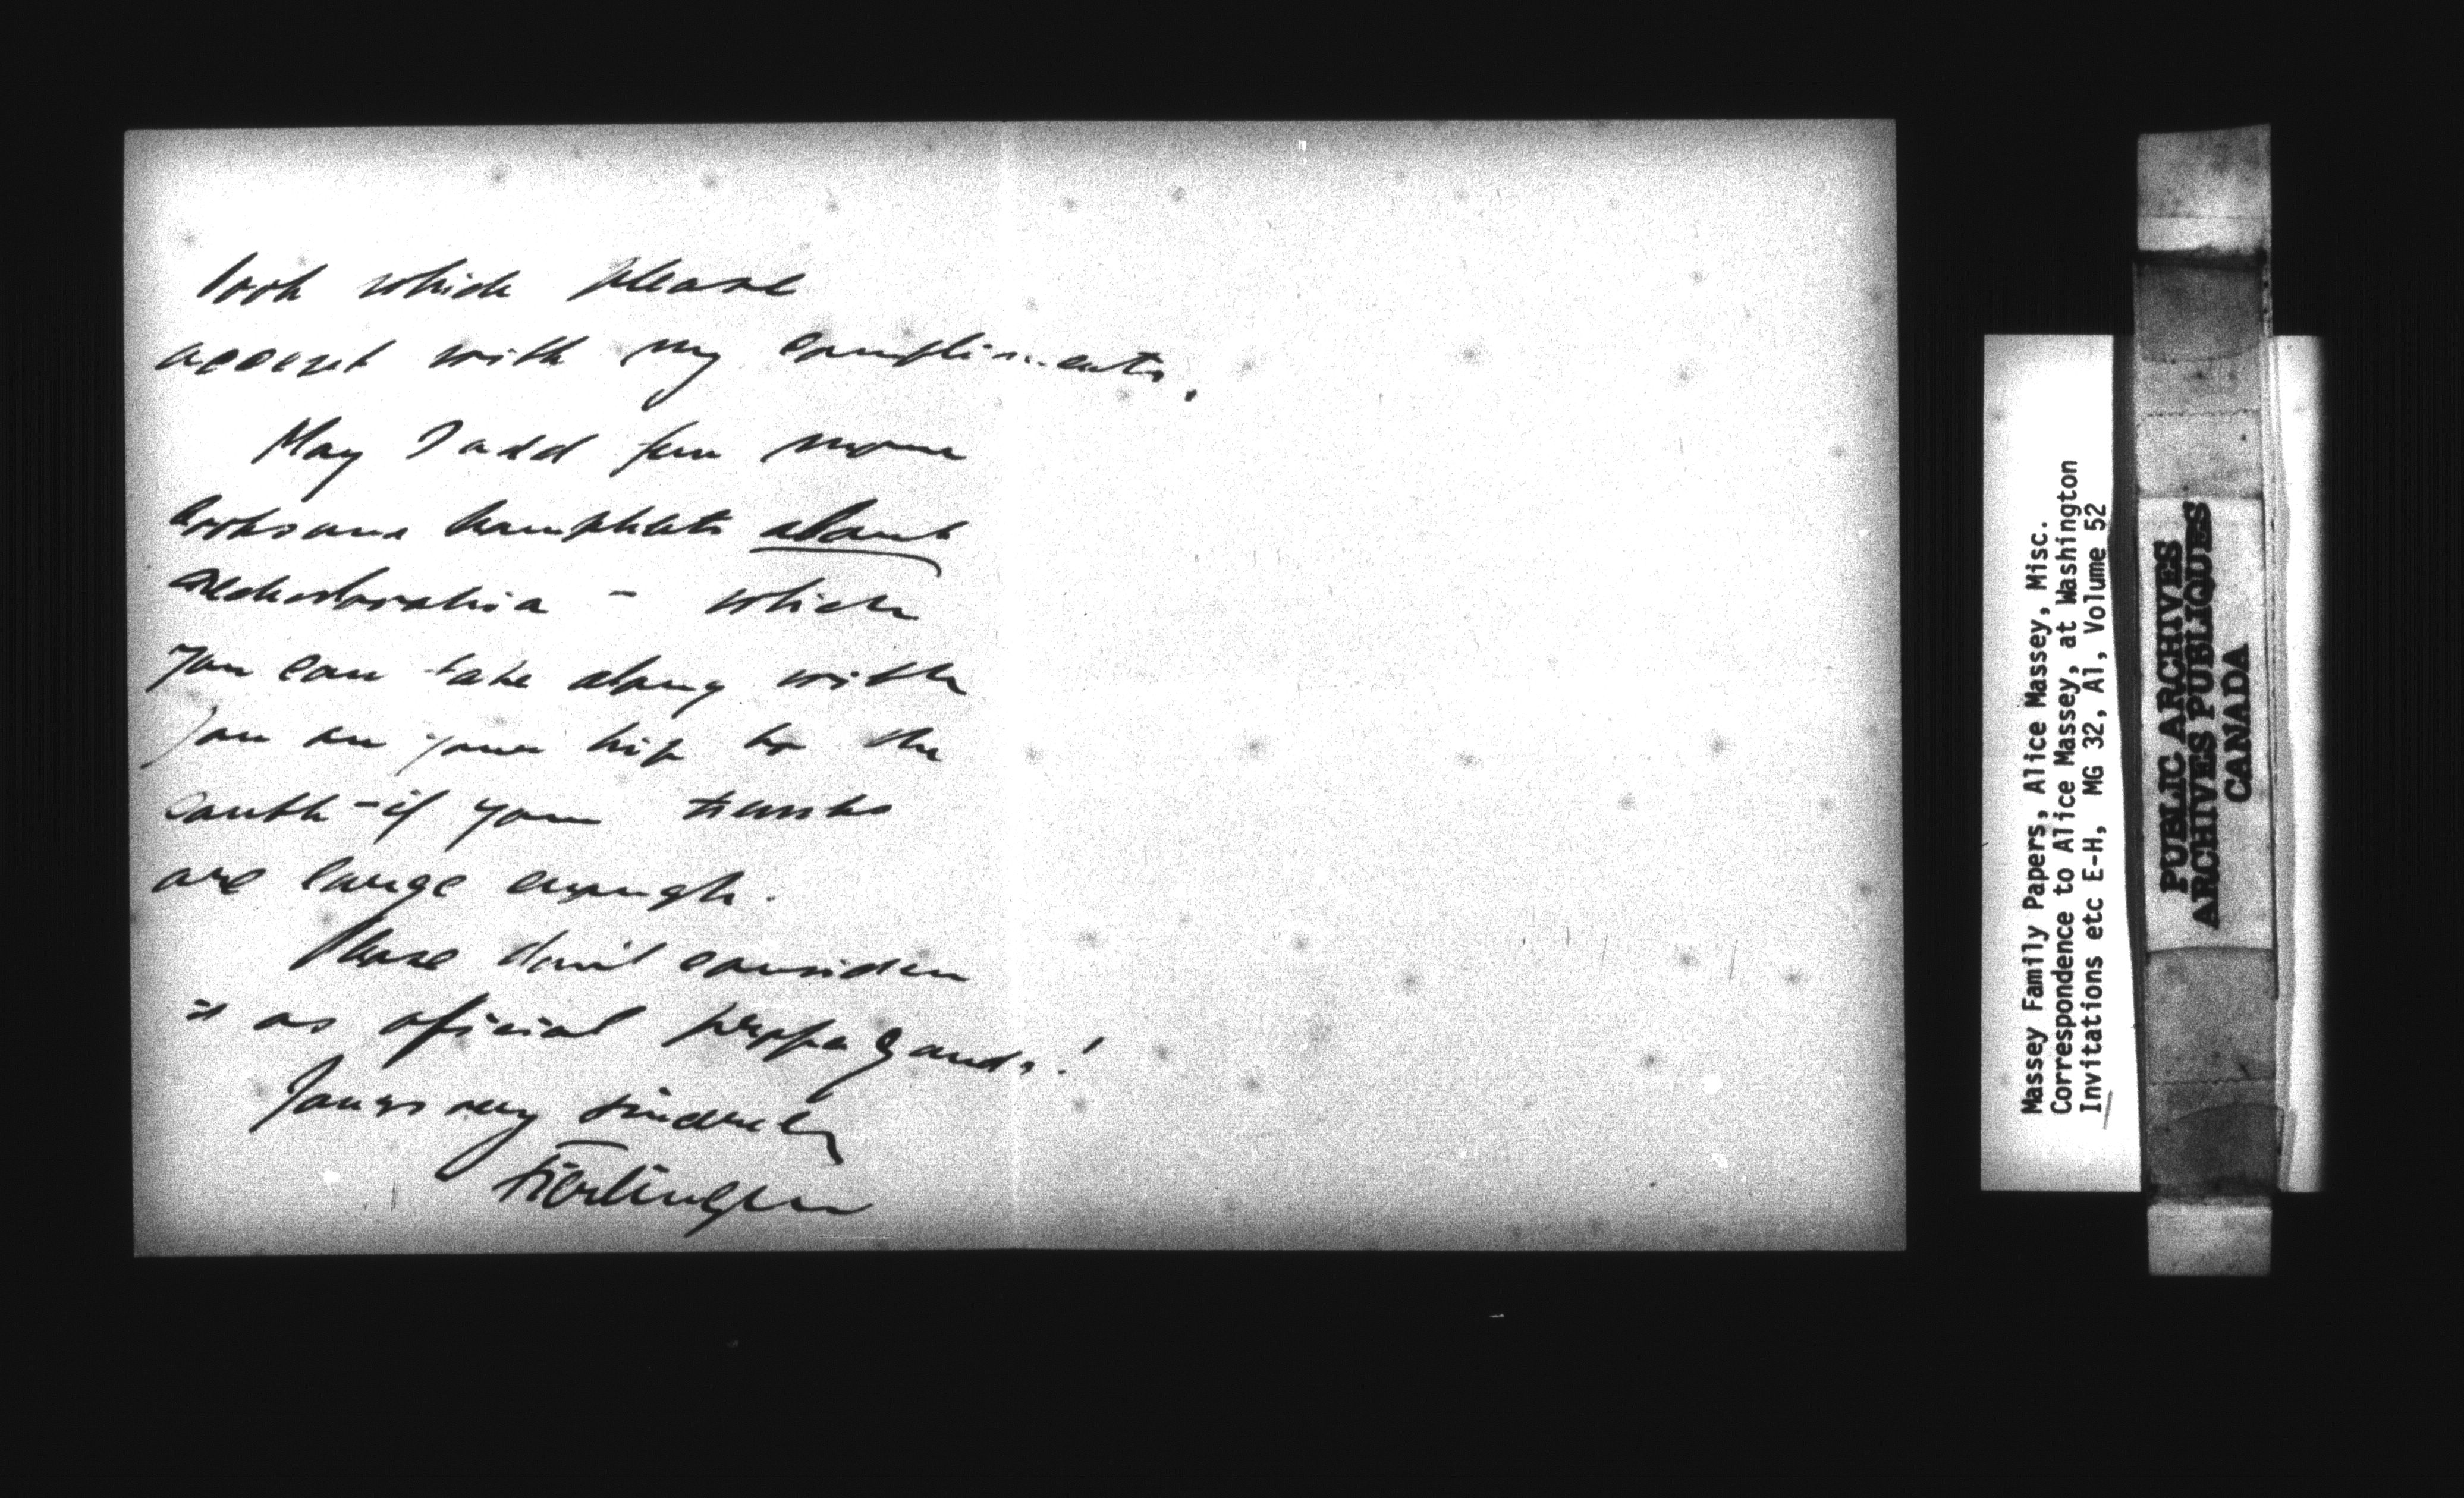 book which please
accept with my compliments.
May I add few more
books and pamphlets about
Czechoslovakia - which
you can take along with
you on your trip to the
south - if your trunks
are large enough.
Please don't consider
it as oficial propaganda!
Yours very sincerely
Fierlinger
Massey Family Papers, Alice Massey, Misc.
Correspondence to Alice Massey, at Washington
Invitations etc E-H, MG 32, A1, Volume 52
PUBLIC ARCHIVES
ARCHIVES PUBLIQUES
CANADA